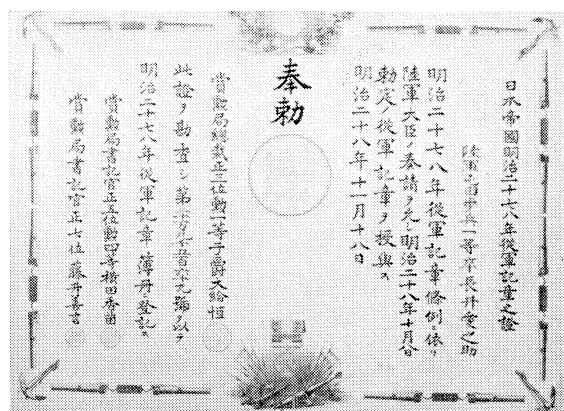 日本帝國明治二十七八年從軍記章之證
陸軍歩兵一等卒長井愛之助
明治二十七八年從軍記章條例ニ依リ
陸軍大臣ノ奏請ヲ允シ明治二十八年十月
勅定ノ從軍記章ヲ授與ス
明治二十八年十一月十八日
奉勅
賞勳局總裁正三位勳一等子爵大給恒
此證ヲ勘査シ第 號ヲ以テ
明治二十七八年從軍記章簿冊ニ登記ス
賞勳局書記官正五位勳四等横田香苗
賞勳局書記官正七位藤井善言